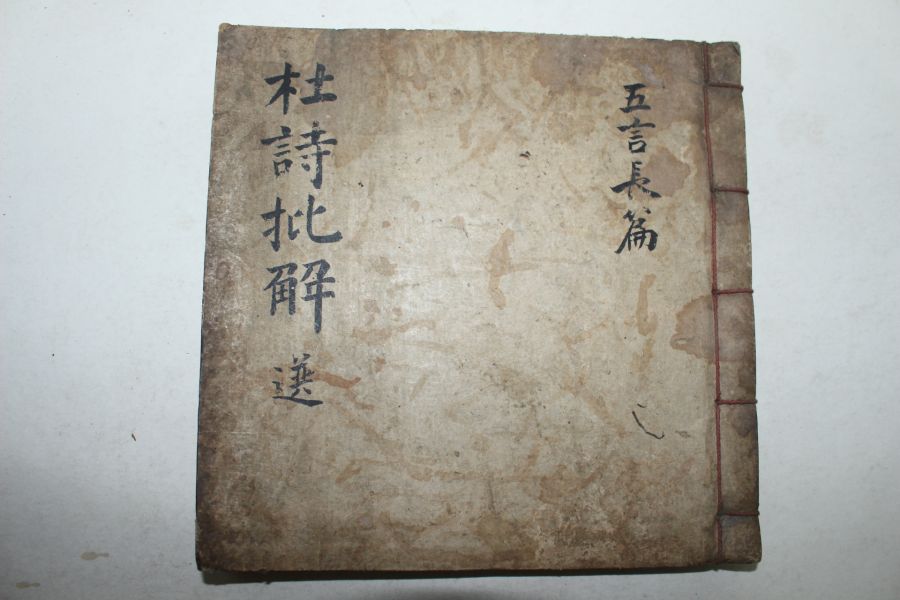 五言長篇
杜詩批解 選